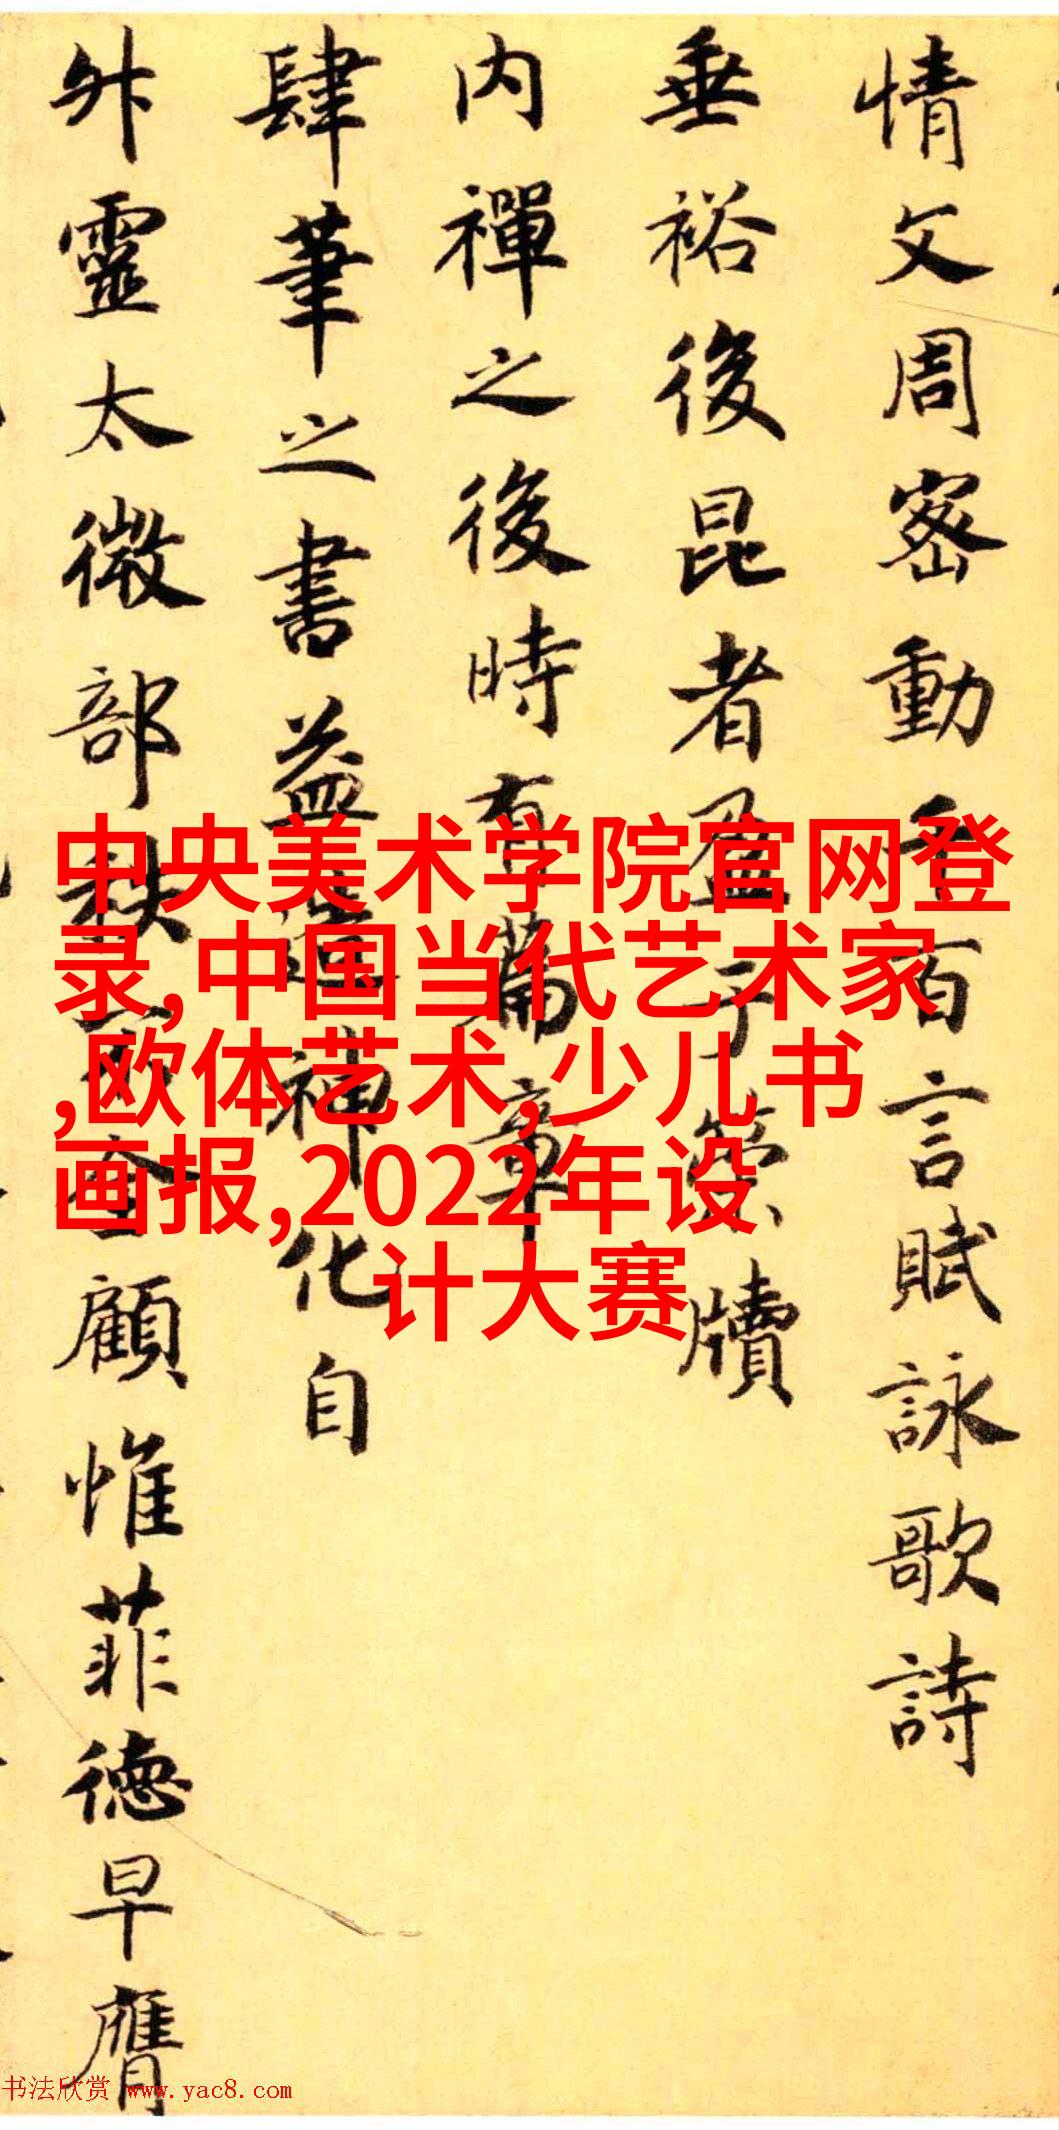 情文周密動千百言賦詠歌詩
垂裕後昆者盈于牘
内禪之後時有篇章
肆筆之書益進神化自
外靈太微部秩奎顧惟菲德早膺
中央美术学院官网登
录,中国当代艺术家
,欧体艺术,少儿书
画报,2022年设
计大赛
书法欣赏 www.yac8.com